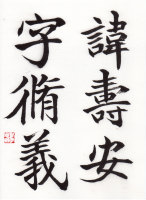 諱壽安
字脩義